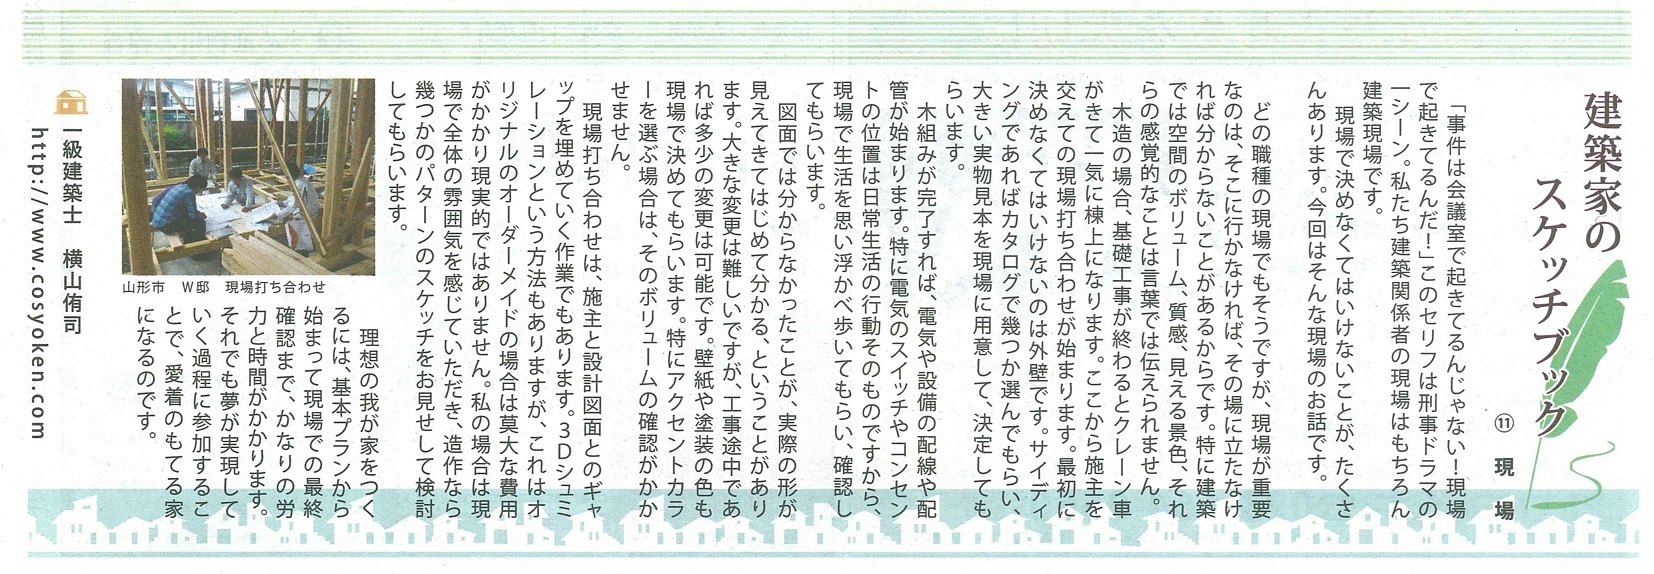 建築家の
スケッチブック
⑪ 現 場
「事件は会議室で起きてるんじゃない！現場
で起きてるんだ！」このセリフは刑事ドラマの
一シーン。私たち建築関係者の現場はもちろん
建築現場です。
現場で決めなくてはいけないことが、たくさ
んあります。今回はそんな現場のお話です。
どの職種の現場でもそうですが、現場が重要
なのは、そこに行かなければ、その場に立たなけ
れば分からないことがあるからです。特に建築
では空間のボリューム、質感、見える景色、それ
らの感覚的なことは言葉では伝えられません。
木造の場合、基礎工事が終わるとクレーン車
がきて一気に棟上になります。ここから施主を
交えての現場打ち合わせが始まります。最初に
決めなくてはいけないのは外壁です。サイディ
ングであればカタログで幾つか選んでもらい、
大きい実物見本を現場に用意して、決定しても
らいます。
木組みが完了すれば、電気や設備の配線や配
管が始まります。特に電気のスイッチやコンセン
トの位置は日常生活の行動そのものですから、
現場で生活を思い浮かべ歩いてもらい、確認し
てもらいます。
図面では分からなかったことが、実際の形が
見えてきてはじめて分かる、ということがあり
ます。大きな変更は難しいですが、工事途中であ
れば多少の変更は可能です。壁紙や塗装の色も
現場で決めてもらいます。特にアクセントカラ
ーを選ぶ場合は、そのボリュームの確認がかか
せません。
現場打ち合わせは、施主と設計図面とのギャ
ップを埋めていく作業でもあります。3Dシュミ
レーションという方法もありますが、これはオ
リジナルのオーダーメイドの場合は莫大な費用
がかかり現実的ではありません。私の場合は現
場で全体の雰囲気を感じていただき、造作なら
幾つかのパターンのスケッチをお見せして検討
してもらいます。
山形市 W邸 現場打ち合わせ
理想の我が家をつく
るには、基本プランから
始まって現場での最終
確認まで、かなりの労
力と時間がかかります。
それでも夢が実現して
いく過程に参加するこ
とで、愛着のもてる家
になるのです。
一級建築士 横山侑司
http://www.cosyoken.com